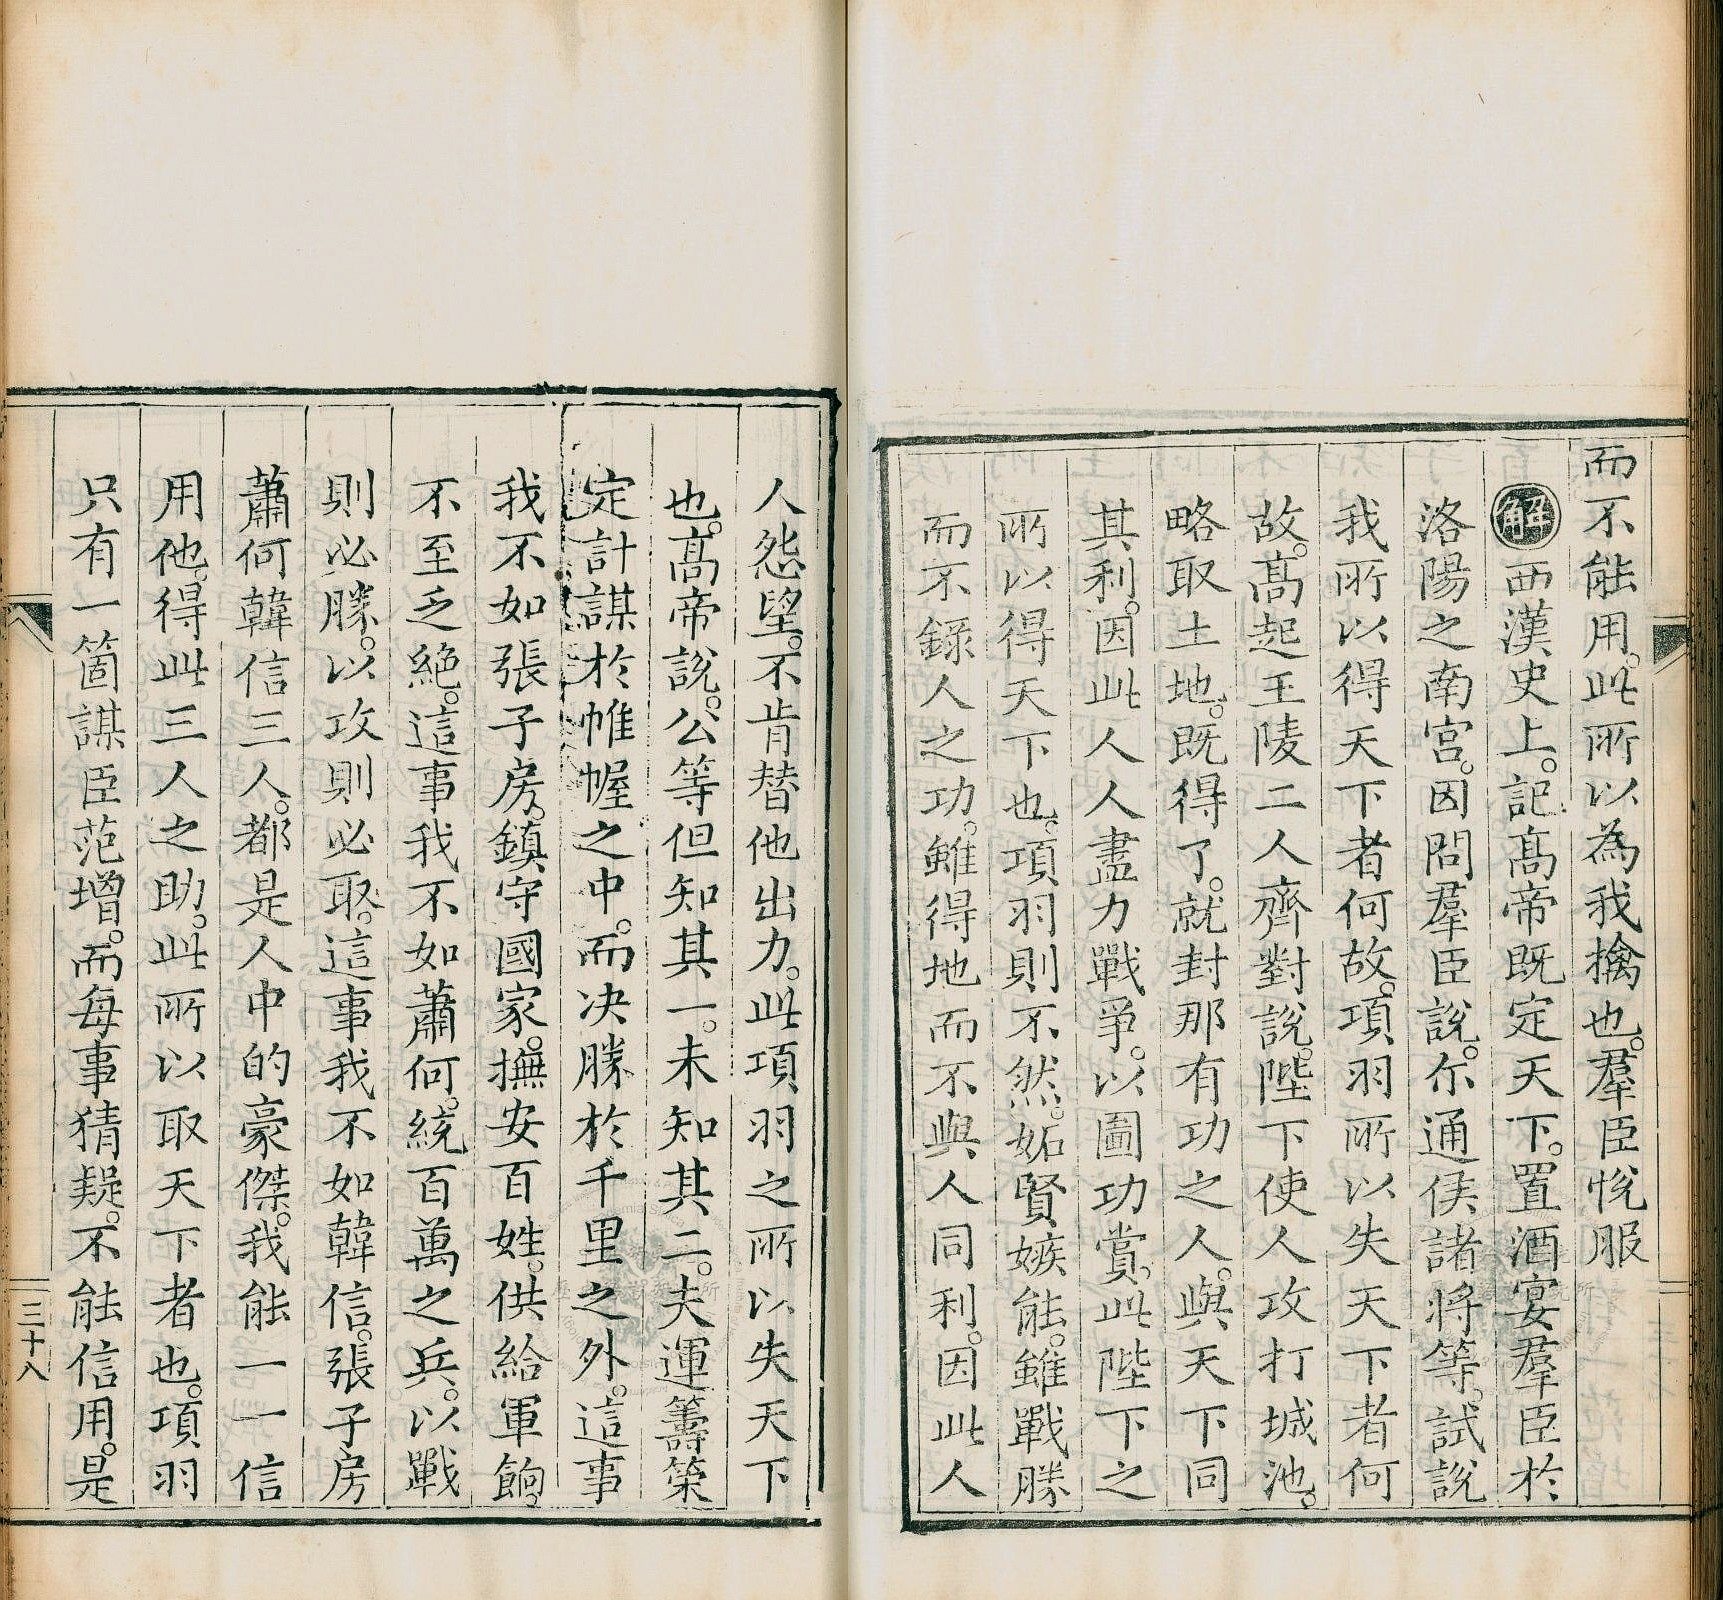 而不能用。此所以為我擒也。羣臣悅服
解西漢史上。記高帝既定天下。置酒宴羣臣於
洛陽之南宮。因問羣臣說。尔通侯諸將等。試說
我所以得天下者何故。項羽所以失天下者何
故。高起王陵二人齊對說。陛下使人攻打城池。
略取土地。既得了。就封那有功之人。與天下同
其利。因此人人盡力戰爭。以圖功賞。此陛下之
所以得天下也。項羽則不然。妬賢嫉能。雖戰勝
而不錄人之功。雖得地而不與人同利。因此人
人怨望。不肯替他出力。此項羽之所以失天下
也。高帝說。公等但知其一。未知其二。夫運籌策
定計謀於帷幄之中。而決勝於千里之外。這事
我不如張子房。鎮守國家。撫安百姓。供給軍餉。
不至乏絕。這事我不如蕭何。統百萬之兵。以戰
則必勝。以攻則必取。這事我不如韓信。張子房
蕭何韓信三人。都是人中的豪傑。我能一一信
用他。得此三人之助。此所以取天下者也。項羽
只有一箇謀臣范增。而每事猜疑。不能信用。是
三十八